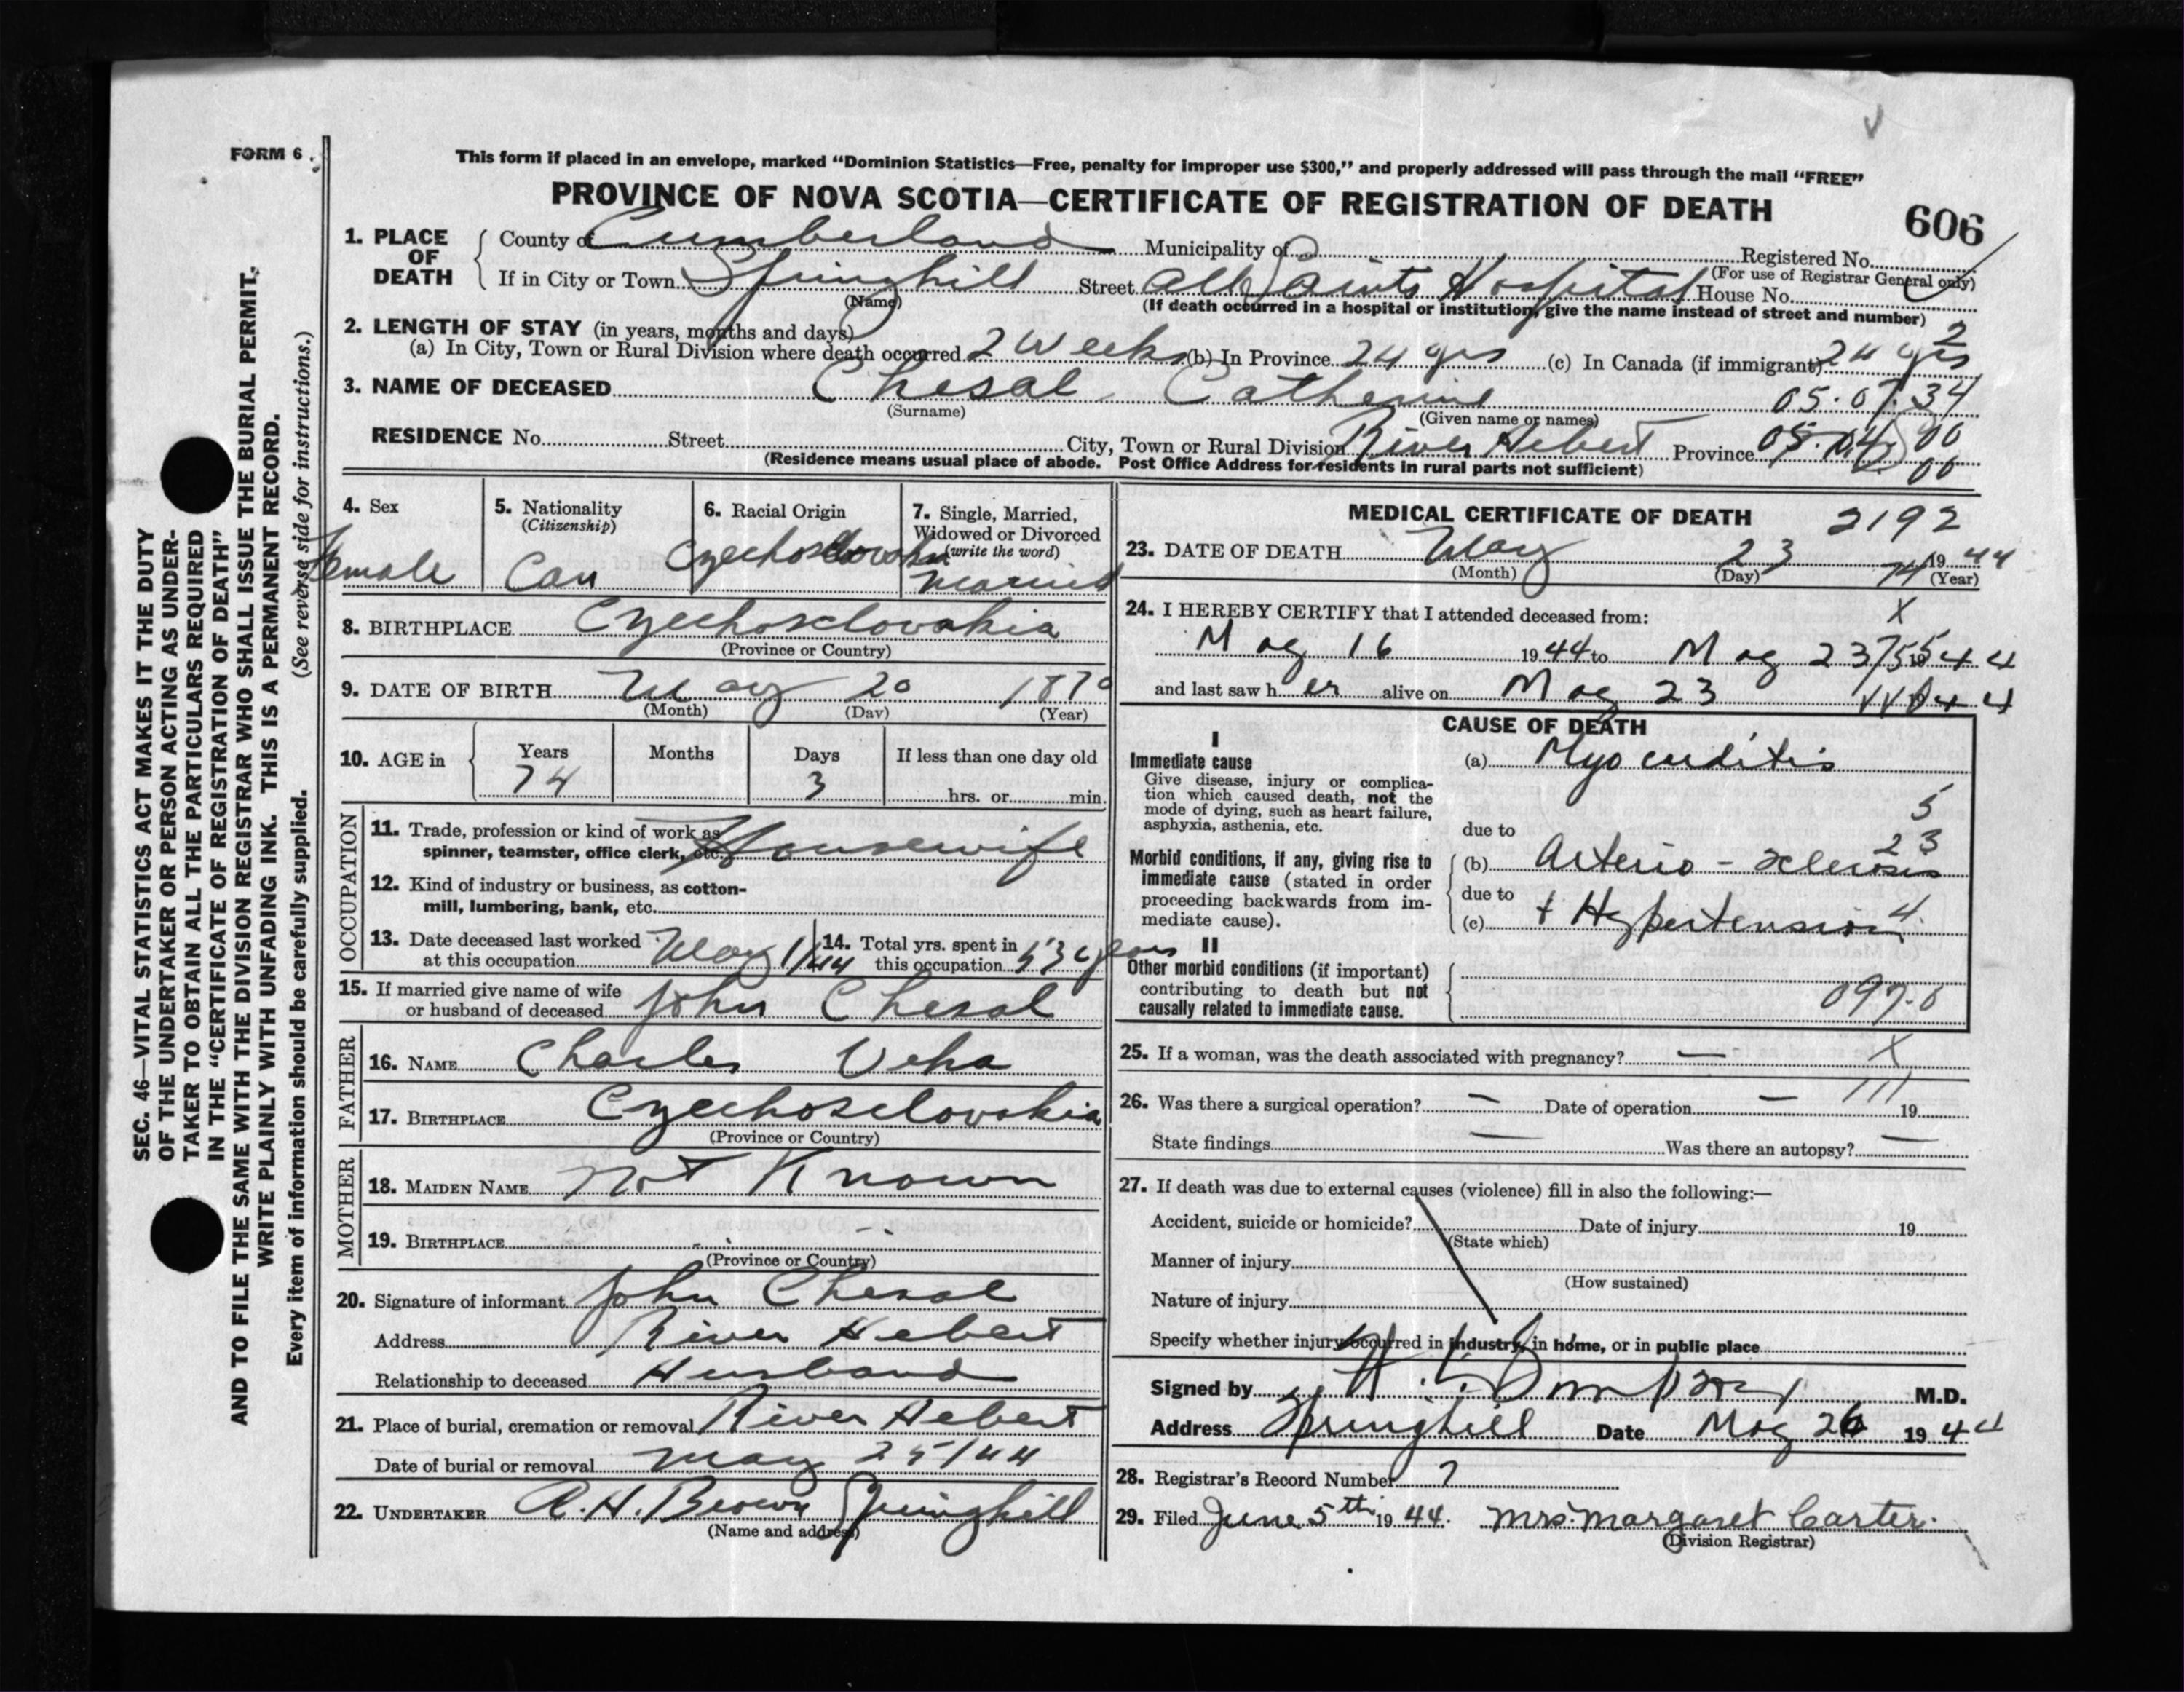 FORM 6.
This form if placed in an envelope, marked “Dominion Statistics—Free, penalty for improper use $300,” and properly addressed will pass through the mail “FREE”
PROVINCE OF NOVA SCOTIA—CERTIFICATE OF REGISTRATION OF DEATH
606
1. PLACE OF DEATH
County of Cumberland Municipality of Registered No.
(For use of Registrar General only)
If in City or Town Springhill Street All Saints Hospital House No.
(Name) (If death occurred in a hospital or institution, give the name instead of street and number)
2. LENGTH OF STAY (in years, months and days) 2
(a) In City, Town or Rural Division where death occurred 2 Weeks (b) In Province 24 yrs (c) In Canada (if immigrant) 24 yrs
3. NAME OF DECEASED Chesal Catherine 05.07.34
(Surname) (Given name or names)
RESIDENCE No. Street City, Town or Rural Division River Hebert Province 00
(Residence means usual place of abode. Post Office Address for residents in rural parts not sufficient) 00
4. Sex
Female
5. Nationality
(Citizenship)
Can
6. Racial Origin
Czechoslovakia
7. Single, Married,
Widowed or Divorced
(write the word)
married
8. BIRTHPLACE Czechosclovakia
(Province or Country)
9. DATE OF BIRTH May 20 1870
(Month) (Day) (Year)
10. AGE in
Years Months Days If less than one day old
74 3 hrs. or min.
OCCUPATION
11. Trade, profession or kind of work as
spinner, teamster, office clerk, etc. Housewife
12. Kind of industry or business, as cotton-
mill, lumbering, bank, etc.
13. Date deceased last worked
at this occupation May 1/44
14. Total yrs. spent in
this occupation 53 years
15. If married give name of wife
or husband of deceased John Chesal
FATHER
16. NAME Charles Veha
17. BIRTHPLACE Czechosclovakia
(Province or Country)
MOTHER
18. MAIDEN NAME Not Known
19. BIRTHPLACE -
(Province or Country)
20. Signature of informant John Chesal
Address River Hebert
Relationship to deceased Husband
21. Place of burial, cremation or removal River Hebert
Date of burial or removal may 25/44
22. UNDERTAKER A.H. Brown Springhill
(Name and address)
MEDICAL CERTIFICATE OF DEATH 2192
23. DATE OF DEATH May 23 1944
(Month) (Day) (Year)
74
24. I HEREBY CERTIFY that I attended deceased from: X
May 16 1944 to May 23 1944
and last saw her alive on May 23 44
CAUSE OF DEATH
I
Immediate cause
Give disease, injury or complica-
tion which caused death, not the
mode of dying, such as heart failure,
asphyxia, asthenia, etc.
(a) Myocarditis
5
due to
23
Morbid conditions, if any, giving rise to
immediate cause (stated in order
proceeding backwards from im-
mediate cause).
(b) Arterio - sclerosis
due to
(c) + Hypertension 4.
II
Other morbid conditions (if important)
contributing to death but not
causally related to immediate cause.
097.0
25. If a woman, was the death associated with pregnancy? — X
26. Was there a surgical operation? — Date of operation — 19
State findings — Was there an autopsy? —
27. If death was due to external causes (violence) fill in also the following:—
Accident, suicide or homicide? Date of injury 19
(State which)
Manner of injury
(How sustained)
Nature of injury
Specify whether injury occurred in industry, in home, or in public place
Signed by M.D.
Address Springhill Date May 26 1944
28. Registrar's Record Number 7
29. Filed June 5th 1944. Mrs. Margaret Carter.
(Division Registrar)
SEC. 46—VITAL STATISTICS ACT MAKES IT THE DUTY
OF THE UNDERTAKER OR PERSON ACTING AS UNDER-
TAKER TO OBTAIN ALL THE PARTICULARS REQUIRED
IN THE “CERTIFICATE OF REGISTRATION OF DEATH”
AND TO FILE THE SAME WITH THE DIVISION REGISTRAR WHO SHALL ISSUE THE BURIAL PERMIT.
WRITE PLAINLY WITH UNFADING INK. THIS IS A PERMANENT RECORD.
Every item of information should be carefully supplied. (See reverse side for instructions.)